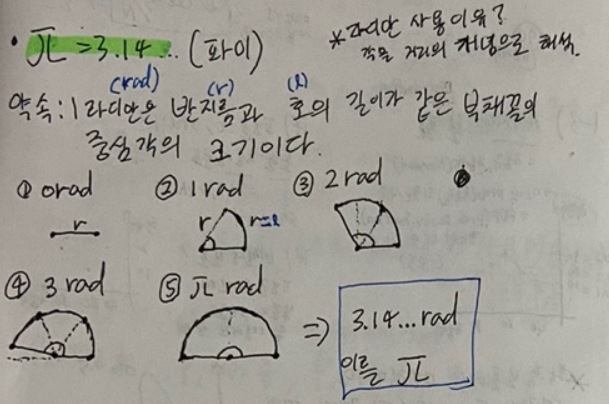 • π = 3.14... (파이)
* 라디안 사용이유?
각을 거리의 개념으로 해석.
(rad) (r) (l)
약속: 1 라디안은 반지름과 호의 길이가 같은 부채꼴의
중심각의 크기이다.
① 0rad ② 1 rad ③ 2 rad
r r r=l
④ 3 rad ⑤ π rad
⇒ 3.14...rad
이를 π